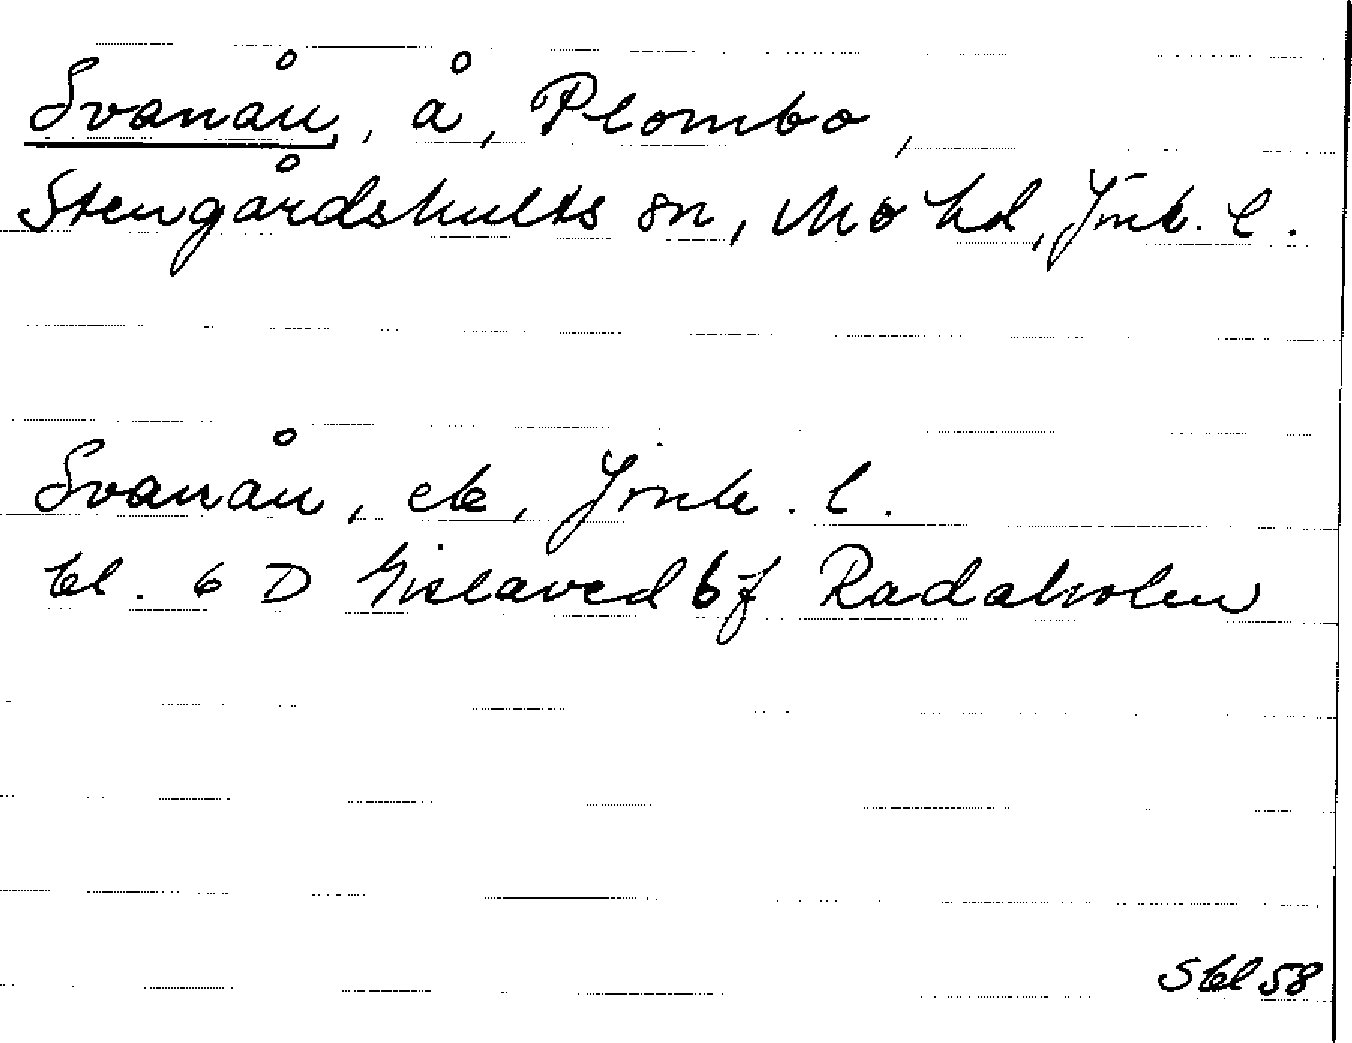 Svanån, å, Plombo,
Stengårdshults sn, Mo hd, Jönk. l.
Svanån, ek, Jönk. l.
bl. 6 D Gislaved bf Radaholm
Sbl 58